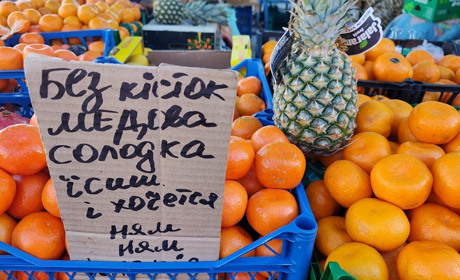 Без кісток
медова
солодка
їси
і хочется
ням
ням